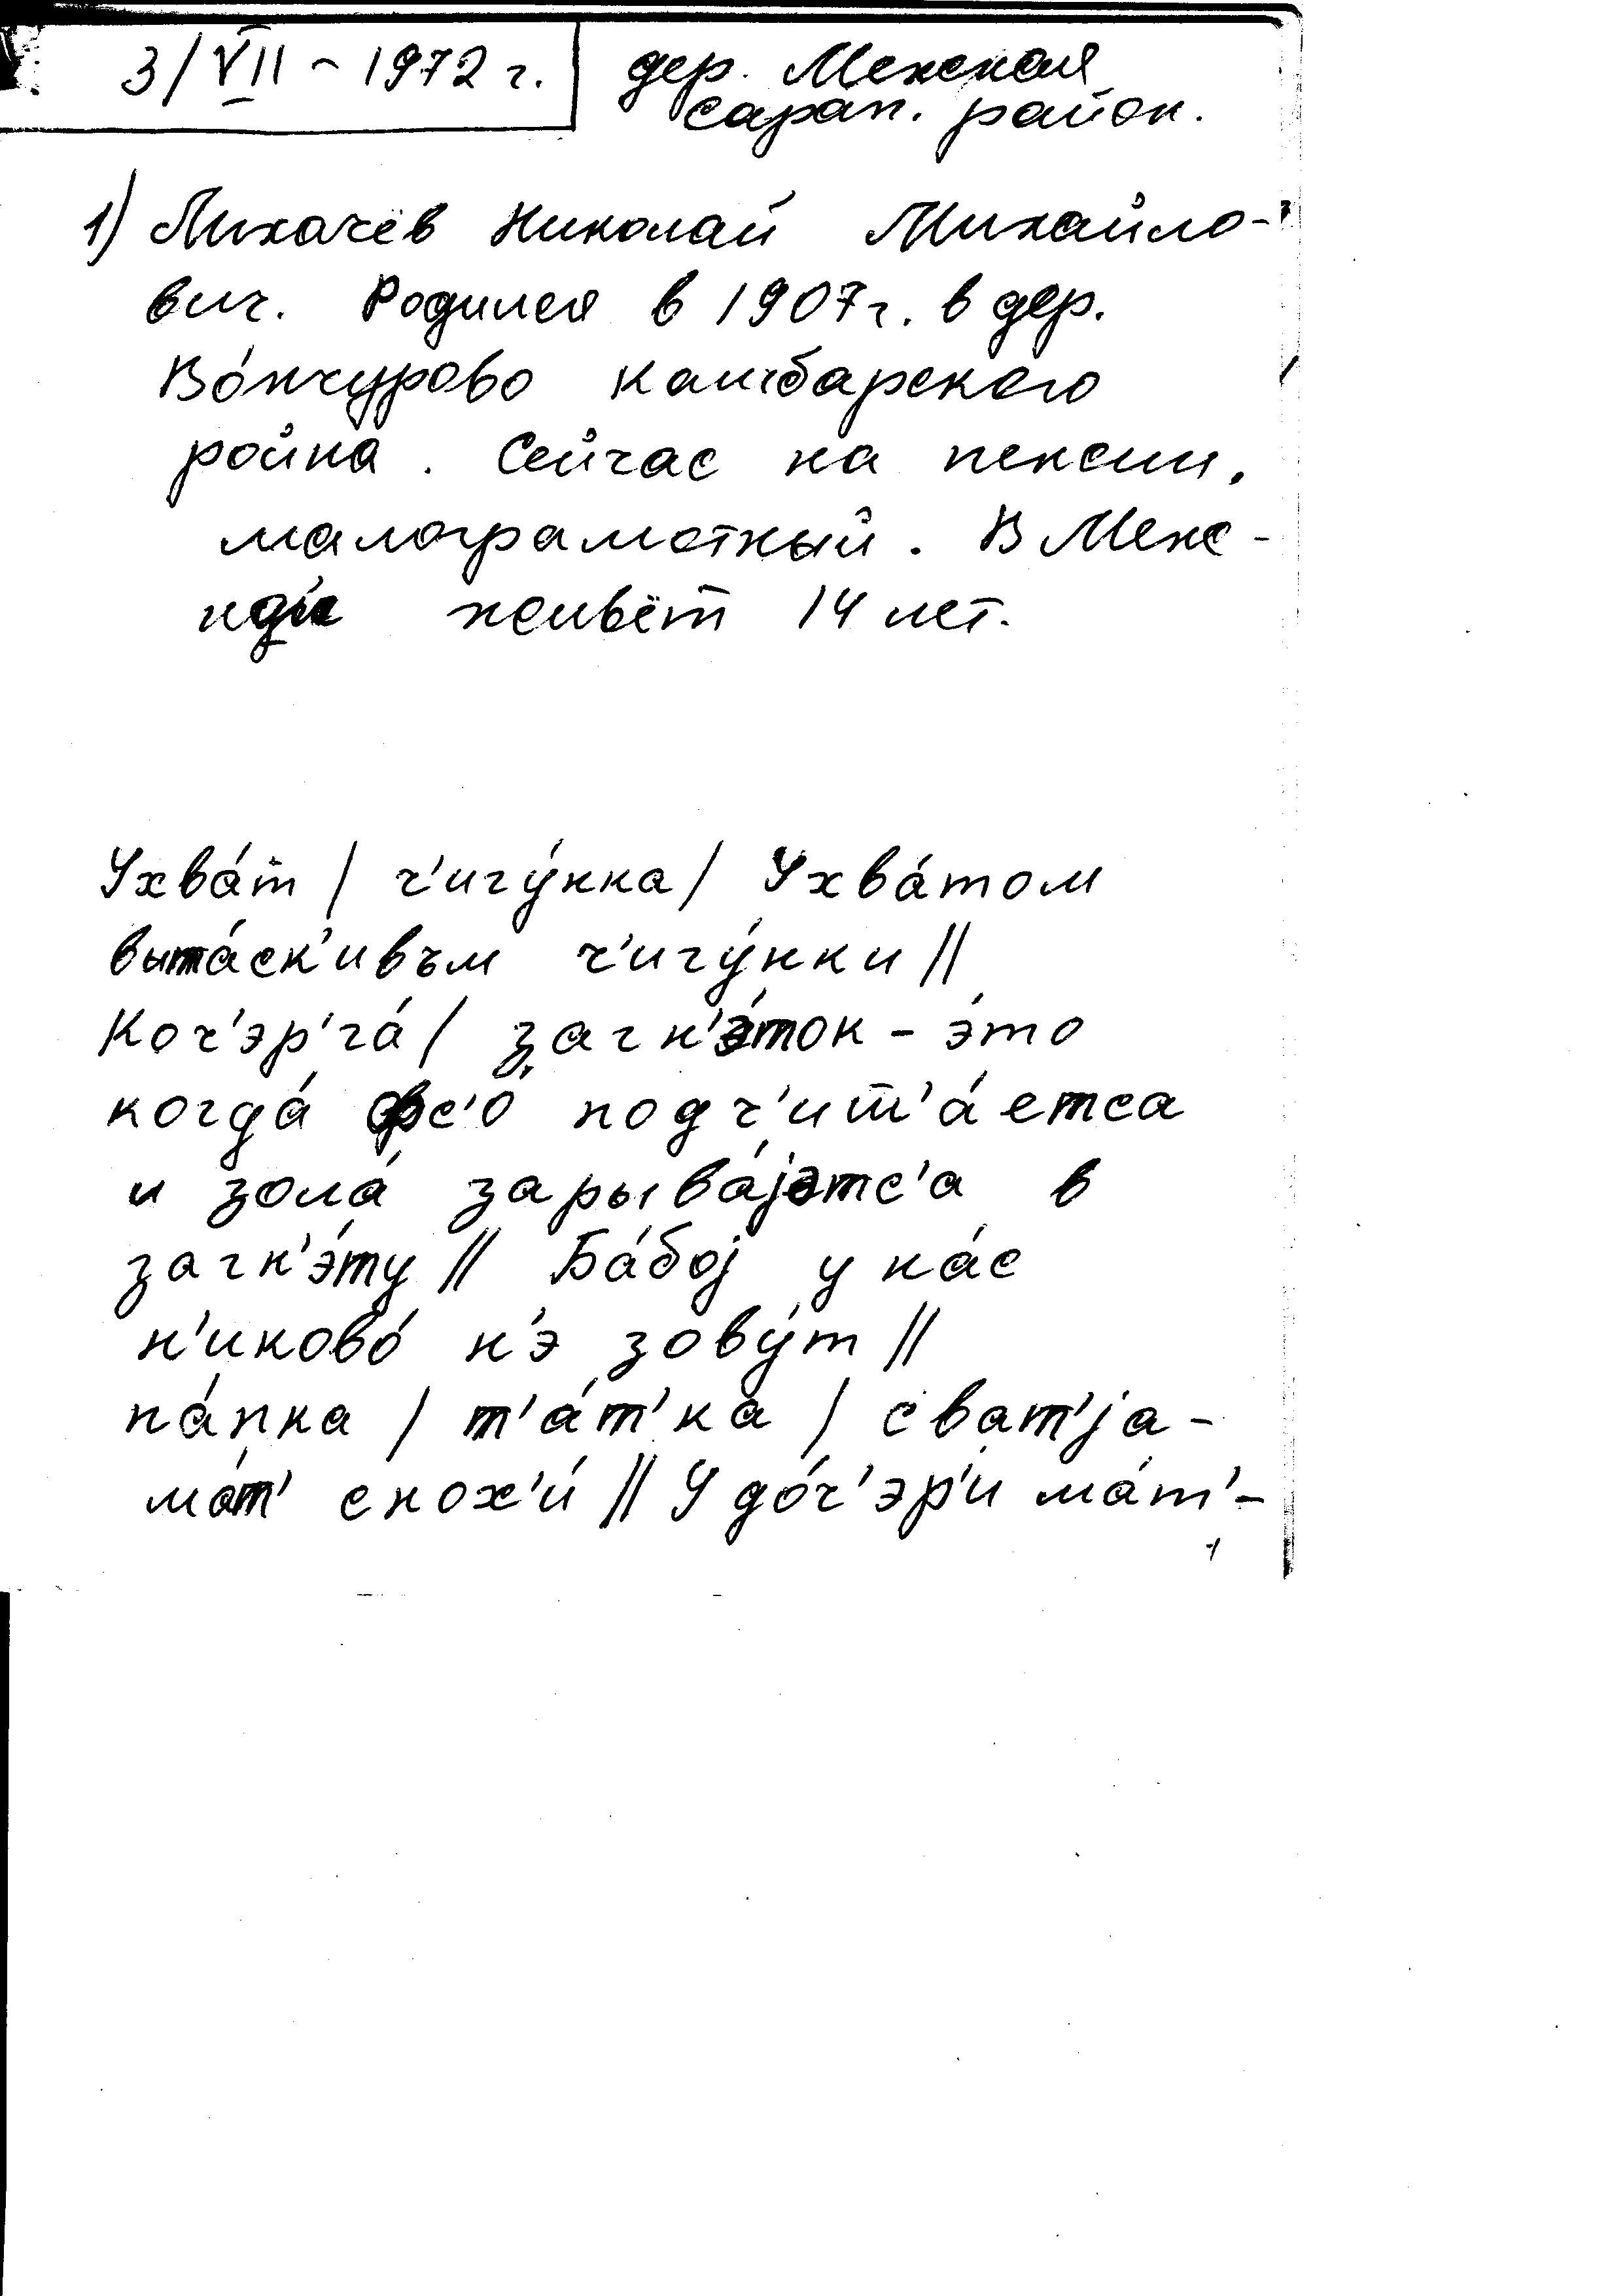 3/VII - 1972 г. дер. Межная
сарап. район.
1) Лихачёв Николай Михайло-
вич. Родился в 1907 г. в дер.
Во́нчурово камбарского
ройна. Сейчас на пенсии,
малограмотный. В Меж-
живёт 14 лет.
Ухва́т / ч'игу́нка / Ухва́том
выта́ск'ивъм ч'игу́нки //
Коч'эр'га́ / загн'э́ток - э́то
когда́ фс'о́ подч'ит'а́етса
и зола́ зарыва́jэтс'а в
загн'э́ту // Ба́боj у на́с
н'иково́ н'э зову́т //
па́пка / т'а́т'ка / сват'jа -
ма́т' снох'и́ // У до́ч'эр'и ма́т' -
1